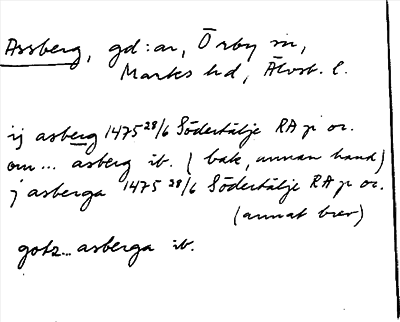 Assberg, gd:ar, Örby sn,
Marks hd, Älvsb. l.
ij asberg 1475 28/6 Södertälje RA p or.
om... asberg ib. (bak, annan hand)
j asberga 1475 28/6 Södertälje RA p or.
(annat brev)
gotz... asberga ib.